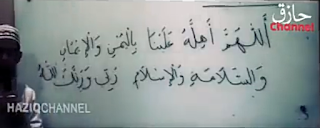 حازق
Channel
اَللّٰهُمَّ أَهِلَّهُ عَلَيْنَا بِالْيُمْنِ وَالْإِيْمَانِ
وَالسَّلَامَةِ وَالْإِسْلَامِ رَبِّيْ وَرَبُّكَ اللهُ
HAZIQCHANNEL